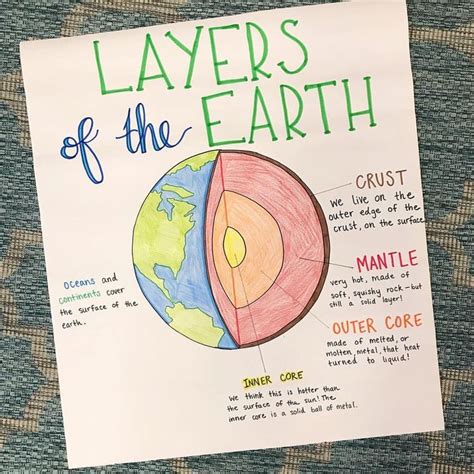 LAYERS
of the EARTH
CRUST
We live on the
outer edge of the
crust, on the surface
MANTLE
very hot, made of
soft, squishy rock - but
still a solid layer!
OUTER CORE
made of melted, or
molten, metal, that heat
turned to liquid!
oceans and
continents cover
the surface of the
earth.
INNER CORE
We think this is hotter than
the surface of the sun! The
inner core is a solid ball of metal.